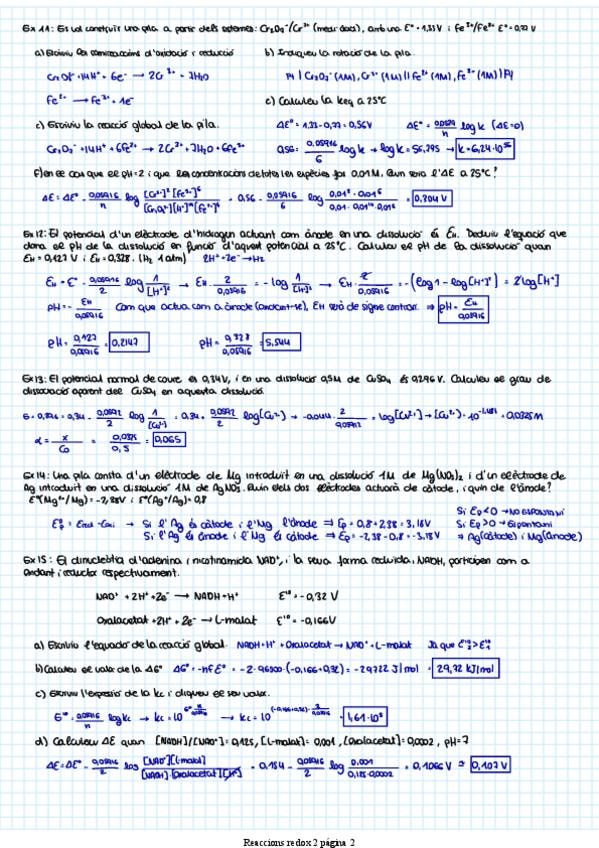 Ex 11: Es vol construir una pila a partir dels sistemes: Cr₂O₇²⁻/Cr³⁺ (medi àcid), amb una E° = 1,33 V i Fe³⁺/Fe²⁺ E° = 0,77 V
a) Escriviu les semireaccions d'oxidació i reducció
b) Indiqueu la notació de la pila.
Cr₂O₇²⁻ + 14H⁺ + 6e⁻ → 2Cr³⁺ + 7H₂O
Pt | Cr₂O₇²⁻ (1M), Cr³⁺ (1M) || Fe²⁺ (1M), Fe³⁺ (1M) | Pt
Fe²⁺ → Fe³⁺ + 1e⁻
c) Calculeu la Keq a 25°C
c) Escriviu la reacció global de la pila.
ΔE° = 1,33 - 0,77 = 0,56V ΔE° = 0,0592/n log k (ΔE=0)
Cr₂O₇²⁻ + 14H⁺ + 6Fe²⁺ → 2Cr³⁺ + 7H₂O + 6Fe³⁺
0,56 = 0,05916/6 log k → log k = 56,795 → k = 6,24·10⁵⁶
f) en cas que el pH = 2 i que les concentracions de totes les espècies fos 0.01M. Quin serà l'ΔE a 25°C?
ΔE = ΔE° - 0,05916/n log [Cr³⁺]²[Fe³⁺]⁶/[Cr₂O₇²⁻][H⁺]¹⁴[Fe²⁺]⁶ = 0.56 - 0,05916/6 log 0,01² · 0,01⁶/0,01 · 0,01¹⁴ · 0,01⁶ = 0,304 V
Ex 12: El potencial d'un elèctrode d'hidrogen actuant com ànode en una dissolució és EH. Deduïu l'equació que
dona el pH de la dissolució en funció d'aquest potencial a 25°C. Calculeu el pH de la dissolució quan
EH = 0,0127 V i EH = 0,328. (H₂ 1 atm) 2H⁺ + 2e⁻ → H₂
EH = E° - 0,05916/2 log 1/[H⁺]² → EH · 2/0,05916 = - log 1/[H⁺]² → EH · 2/0,05916 = -(log 1 - log [H⁺]²) = 2 log [H⁺]
pH = - EH/0,05916 Com que actua com a ànode (oxidant-se), EH serà de signe contrari. ⇒ pH = EH/0,05916
pH = 0,0127/0,05916 = 0,2147 pH = 0,328/0,05916 = 5,544
Ex 13: El potencial normal de coure és 0,34V, i en una dissolució 0,5M de CuSO₄ és 0.296 V. Calculeu el grau de
dissociació aparent del CuSO₄ en aquesta dissolució.
E = 0,296 = 0,34 - 0,0592/2 log 1/[Cu²⁺] = 0,34 + 0,0592/2 log [Cu²⁺] → -0,044 · 2/0,0592 = log [Cu²⁺] → [Cu²⁺] = 10⁻¹·⁴⁸⁶ = 0,0325 M
α = x/C₀ = 0,0325/0,5 = 0,065
Ex 14: Una pila consta d'un elèctrode de Mg introduït en una dissolució 1M de Mg(NO₃)₂ i d'un elèctrode de
Ag introduït en una dissolució 1M de AgNO₃. Quin dels dos elèctrodes actuarà de càtode, i quin de l'ànode?
E°(Mg²⁺/Mg) = -2,38V i E°(Ag⁺/Ag) = 0,8
Si Ep<0 → NO ESPONTANI
E°p = Ered - Eoxi → Si l'Ag és càtode i l'Mg l'ànode ⇒ Ep = 0,8 + 2,38 = 3,18V Si Ep>0 → Espontani
Si l'Ag és ànode i l'Mg és càtode ⇒ Ep = -2,38 - 0,8 = -3,18V ⇒ Ag (càtode) i Mg (ànode)
Ex 15: El dinucleòtid d'adenina i nicotinamida NAD⁺, i la seva forma reduïda, NADH, participen com a
oxidant i reductor respectivament.
NAD⁺ + 2H⁺ + 2e⁻ → NADH + H⁺ E'° = -0,32 V
Oxalacetat + 2H⁺ + 2e⁻ → L-malat E'° = -0,166V
a) Escriviu l'equació de la reacció global. NADH + H⁺ + Oxalacetat → NAD⁺ + L-malat Ja que E'°₂ > E'°₁
b) Calculeu el valor de la ΔG° ΔG° = -nFE° = -2 · 96500 · (-0,166 + 0,32) = -29722 J/mol = 29,72 KJ/mol
c) Escriviu l'expressió de la Kc i digueu el seu valor.
E° = 0,05916/n log Kc → Kc = 10^(E° · n/0,05916) → Kc = 10^((-0,166+0,32) · 2/0,05916) = 1,61 · 10⁵
d) Calculeu ΔE quan [NADH]/[NAD⁺] = 0,125, [L-malat] = 0,001, [Oxalacetat] = 0,0002, pH = 7
ΔE = ΔE° - 0,05916/2 log [NAD⁺][L-malat]/[NADH]·[Oxalacetat][H⁺] = 0.154 - 0,05916/2 log 0,001/0,125·0,0002 = 0,1066 V ≈ 0,107 V
Reaccions redox 2 página 2